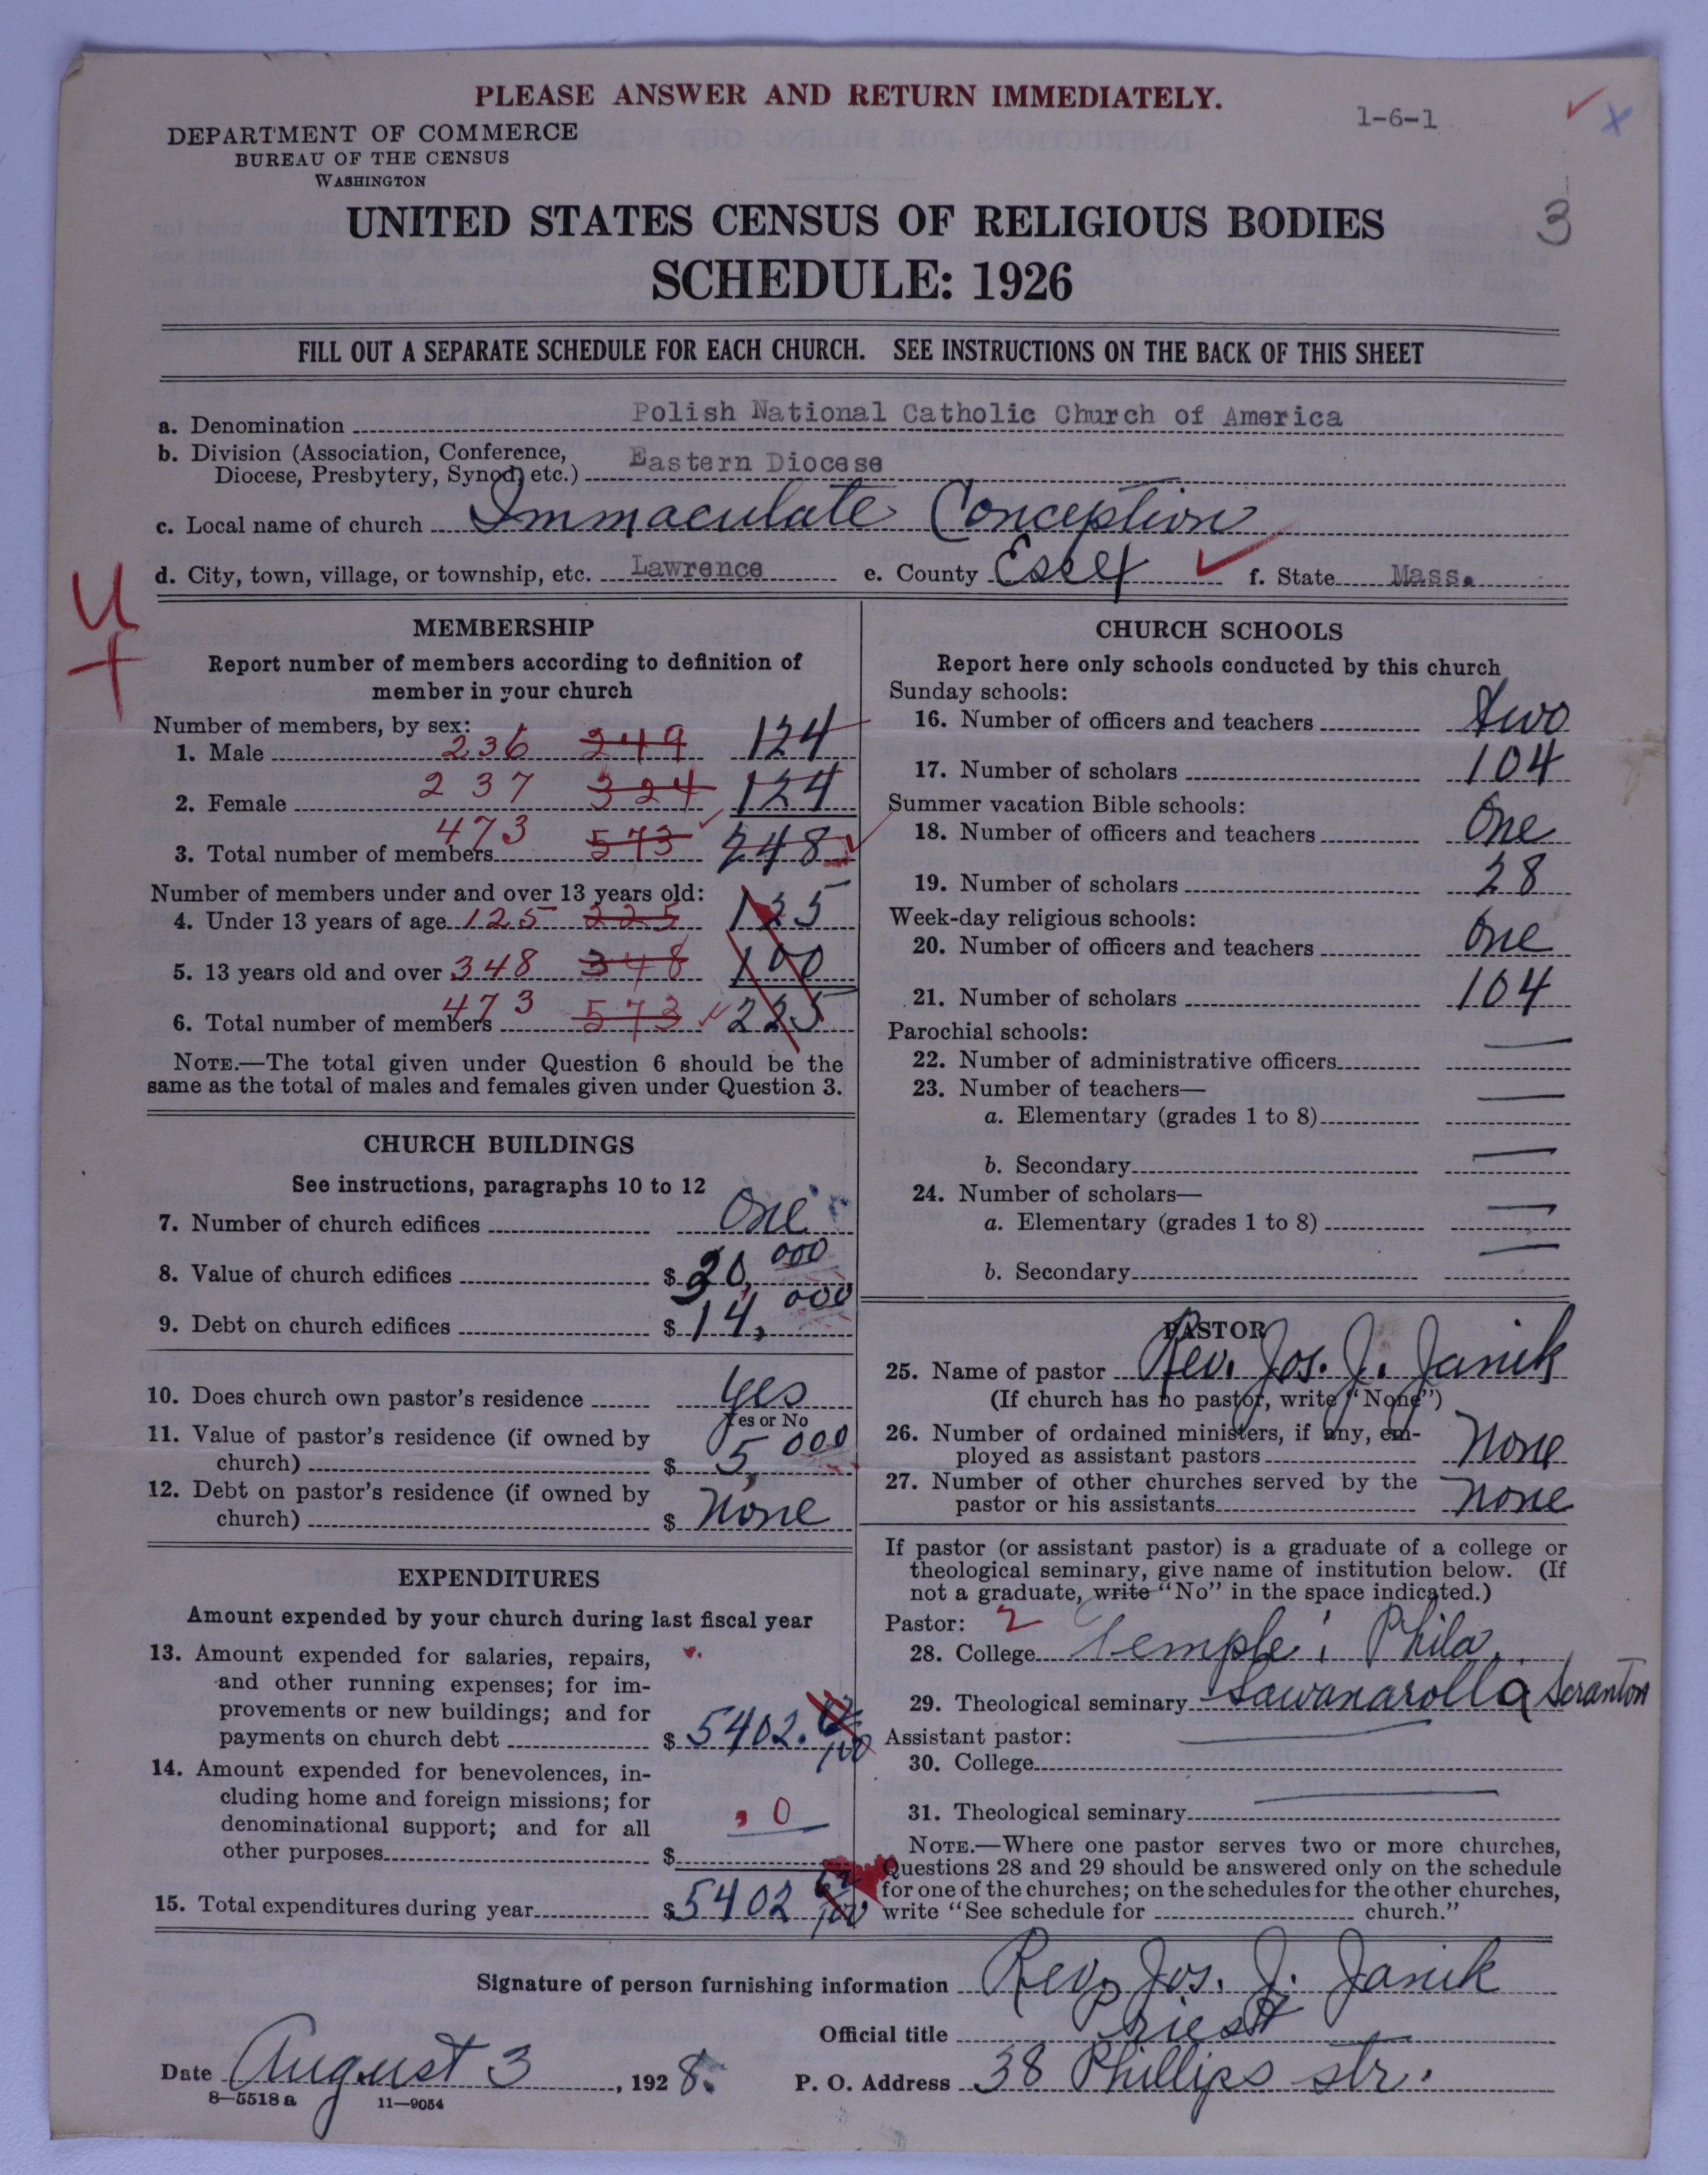 PLEASE ANSWER AND RETURN IMMEDIATELY.
1-6-1
DEPARTMENT OF COMMERCE
BUREAU OF THE CENSUS
WASHINGTON
UNITED STATES CENSUS OF RELIGIOUS BODIES
3
SCHEDULE: 1926
FILL OUT A SEPARATE SCHEDULE FOR EACH CHURCH. SEE INSTRUCTIONS ON THE BACK OF THIS SHEET
a. Denomination Polish National Catholic Church of America
b. Division (Association, Conference,
Diocese, Presbytery, Synod, etc.) Eastern Diocese
c. Local name of church Immaculate Conception
d. City, town, village, or township, etc. Lawrence e. County Essex f. State Mass.
U
+
MEMBERSHIP
Report number of members according to definition of
member in your church
Number of members, by sex:
1. Male 236 249 124
2. Female 237 324 124
3. Total number of members 473 573 248
Number of members under and over 13 years old:
4. Under 13 years of age 125 225 125
5. 13 years old and over 348 348 100
6. Total number of members 473 573 225
NOTE.—The total given under Question 6 should be the
same as the total of males and females given under Question 3.
CHURCH BUILDINGS
See instructions, paragraphs 10 to 12
7. Number of church edifices One
8. Value of church edifices $ 20,000
9. Debt on church edifices $ 14,000
10. Does church own pastor's residence Yes
Yes or No
11. Value of pastor's residence (if owned by
church) $ 5,000
12. Debt on pastor's residence (if owned by
church) $ None
EXPENDITURES
Amount expended by your church during last fiscal year
13. Amount expended for salaries, repairs,
and other running expenses; for im-
provements or new buildings; and for
payments on church debt $ 5402.
14. Amount expended for benevolences, in-
cluding home and foreign missions; for
denominational support; and for all
other purposes $ 0
15. Total expenditures during year $ 5402
CHURCH SCHOOLS
Report here only schools conducted by this church
Sunday schools:
16. Number of officers and teachers two
17. Number of scholars 104
Summer vacation Bible schools:
18. Number of officers and teachers One
19. Number of scholars 28
Week-day religious schools:
20. Number of officers and teachers One
21. Number of scholars 104
Parochial schools:
22. Number of administrative officers —
23. Number of teachers—
a. Elementary (grades 1 to 8) —
b. Secondary —
24. Number of scholars—
a. Elementary (grades 1 to 8) —
b. Secondary —
PASTOR
25. Name of pastor Rev. Jos. J. Janik
(If church has no pastor, write "None")
26. Number of ordained ministers, if any, em-
ployed as assistant pastors None
27. Number of other churches served by the
pastor or his assistants None
If pastor (or assistant pastor) is a graduate of a college or
theological seminary, give name of institution below. (If
not a graduate, write "No" in the space indicated.)
Pastor: 2
28. College Temple; Phila.
29. Theological seminary Sawanarolla Scranton
Assistant pastor:
30. College —
31. Theological seminary —
NOTE.—Where one pastor serves two or more churches,
Questions 28 and 29 should be answered only on the schedule
for one of the churches; on the schedules for the other churches,
write "See schedule for church."
Signature of person furnishing information Rev. Jos. J. Janik
Official title Priest
Date August 3, 1928. P. O. Address 38 Phillips str.
8—5518 a 11—9054